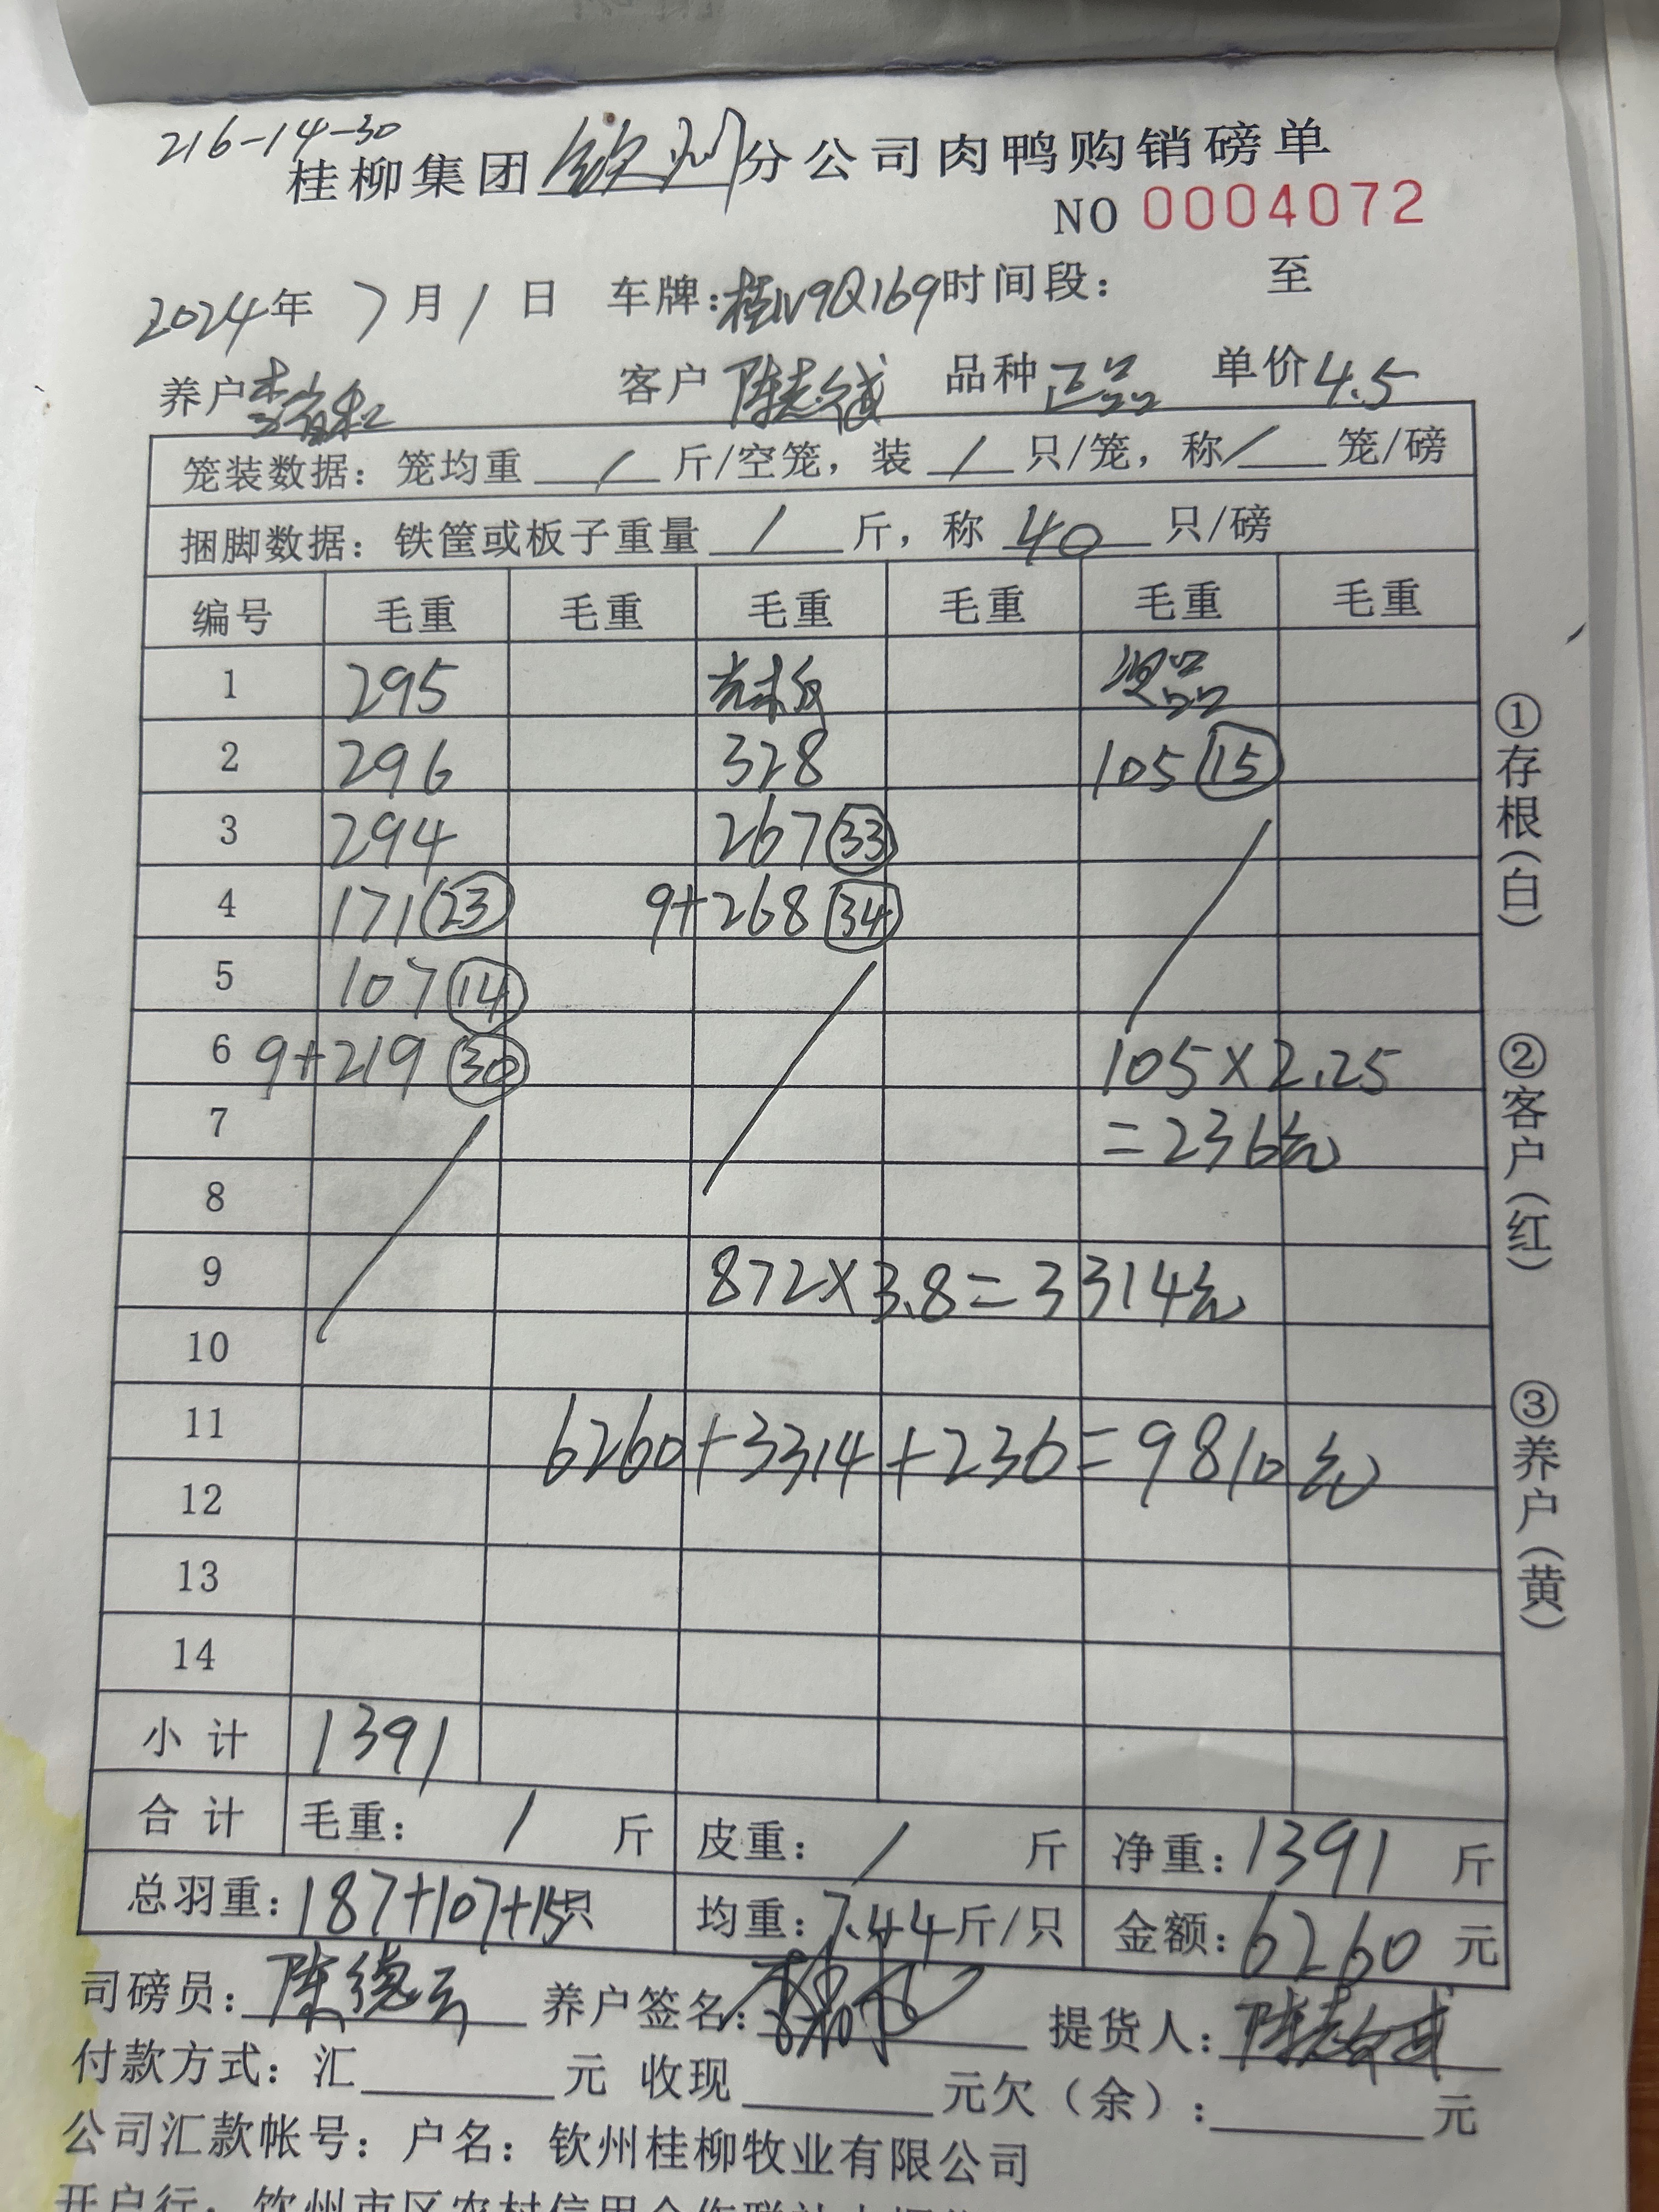 216-14-30
桂柳集团钦州分公司肉鸭购销磅单
NO 0004072
2024年 7月1日 车牌:桂N9Q169时间段: 至
养户 客户 陈志 品种 正品 单价4.5
笼装数据: 笼均重 / 斤/空笼, 装 / 只/笼, 称 / 笼/磅
捆脚数据: 铁筐或板子重量 / 斤, 称 40 只/磅
编号 毛重 毛重 毛重 毛重 毛重 毛重
1 295 品
2 296 328 105 (15)
3 294 267 (33)
4 171 (23) 9+268 (34)
5 107 (14)
6 9+219 (30) 105×2.25
7 =236元
8
9 872×3.8=3314元
10
11 6260+3314+236=9810元
12
13
14
小计 1391
合计 毛重: / 斤 皮重: / 斤 净重: 1391 斤
总羽重: 187+107+15只 均重: 7.44斤/只 金额: 6260 元
司磅员: 陈德云 养户签名: 提货人: 陈志
付款方式: 汇 元 收现 元欠(余): 元
公司汇款帐号: 户名: 钦州桂柳牧业有限公司
开户行: 钦州市区农村信用合作联社
①存根(白)
②客户(红)
③养户(黄)